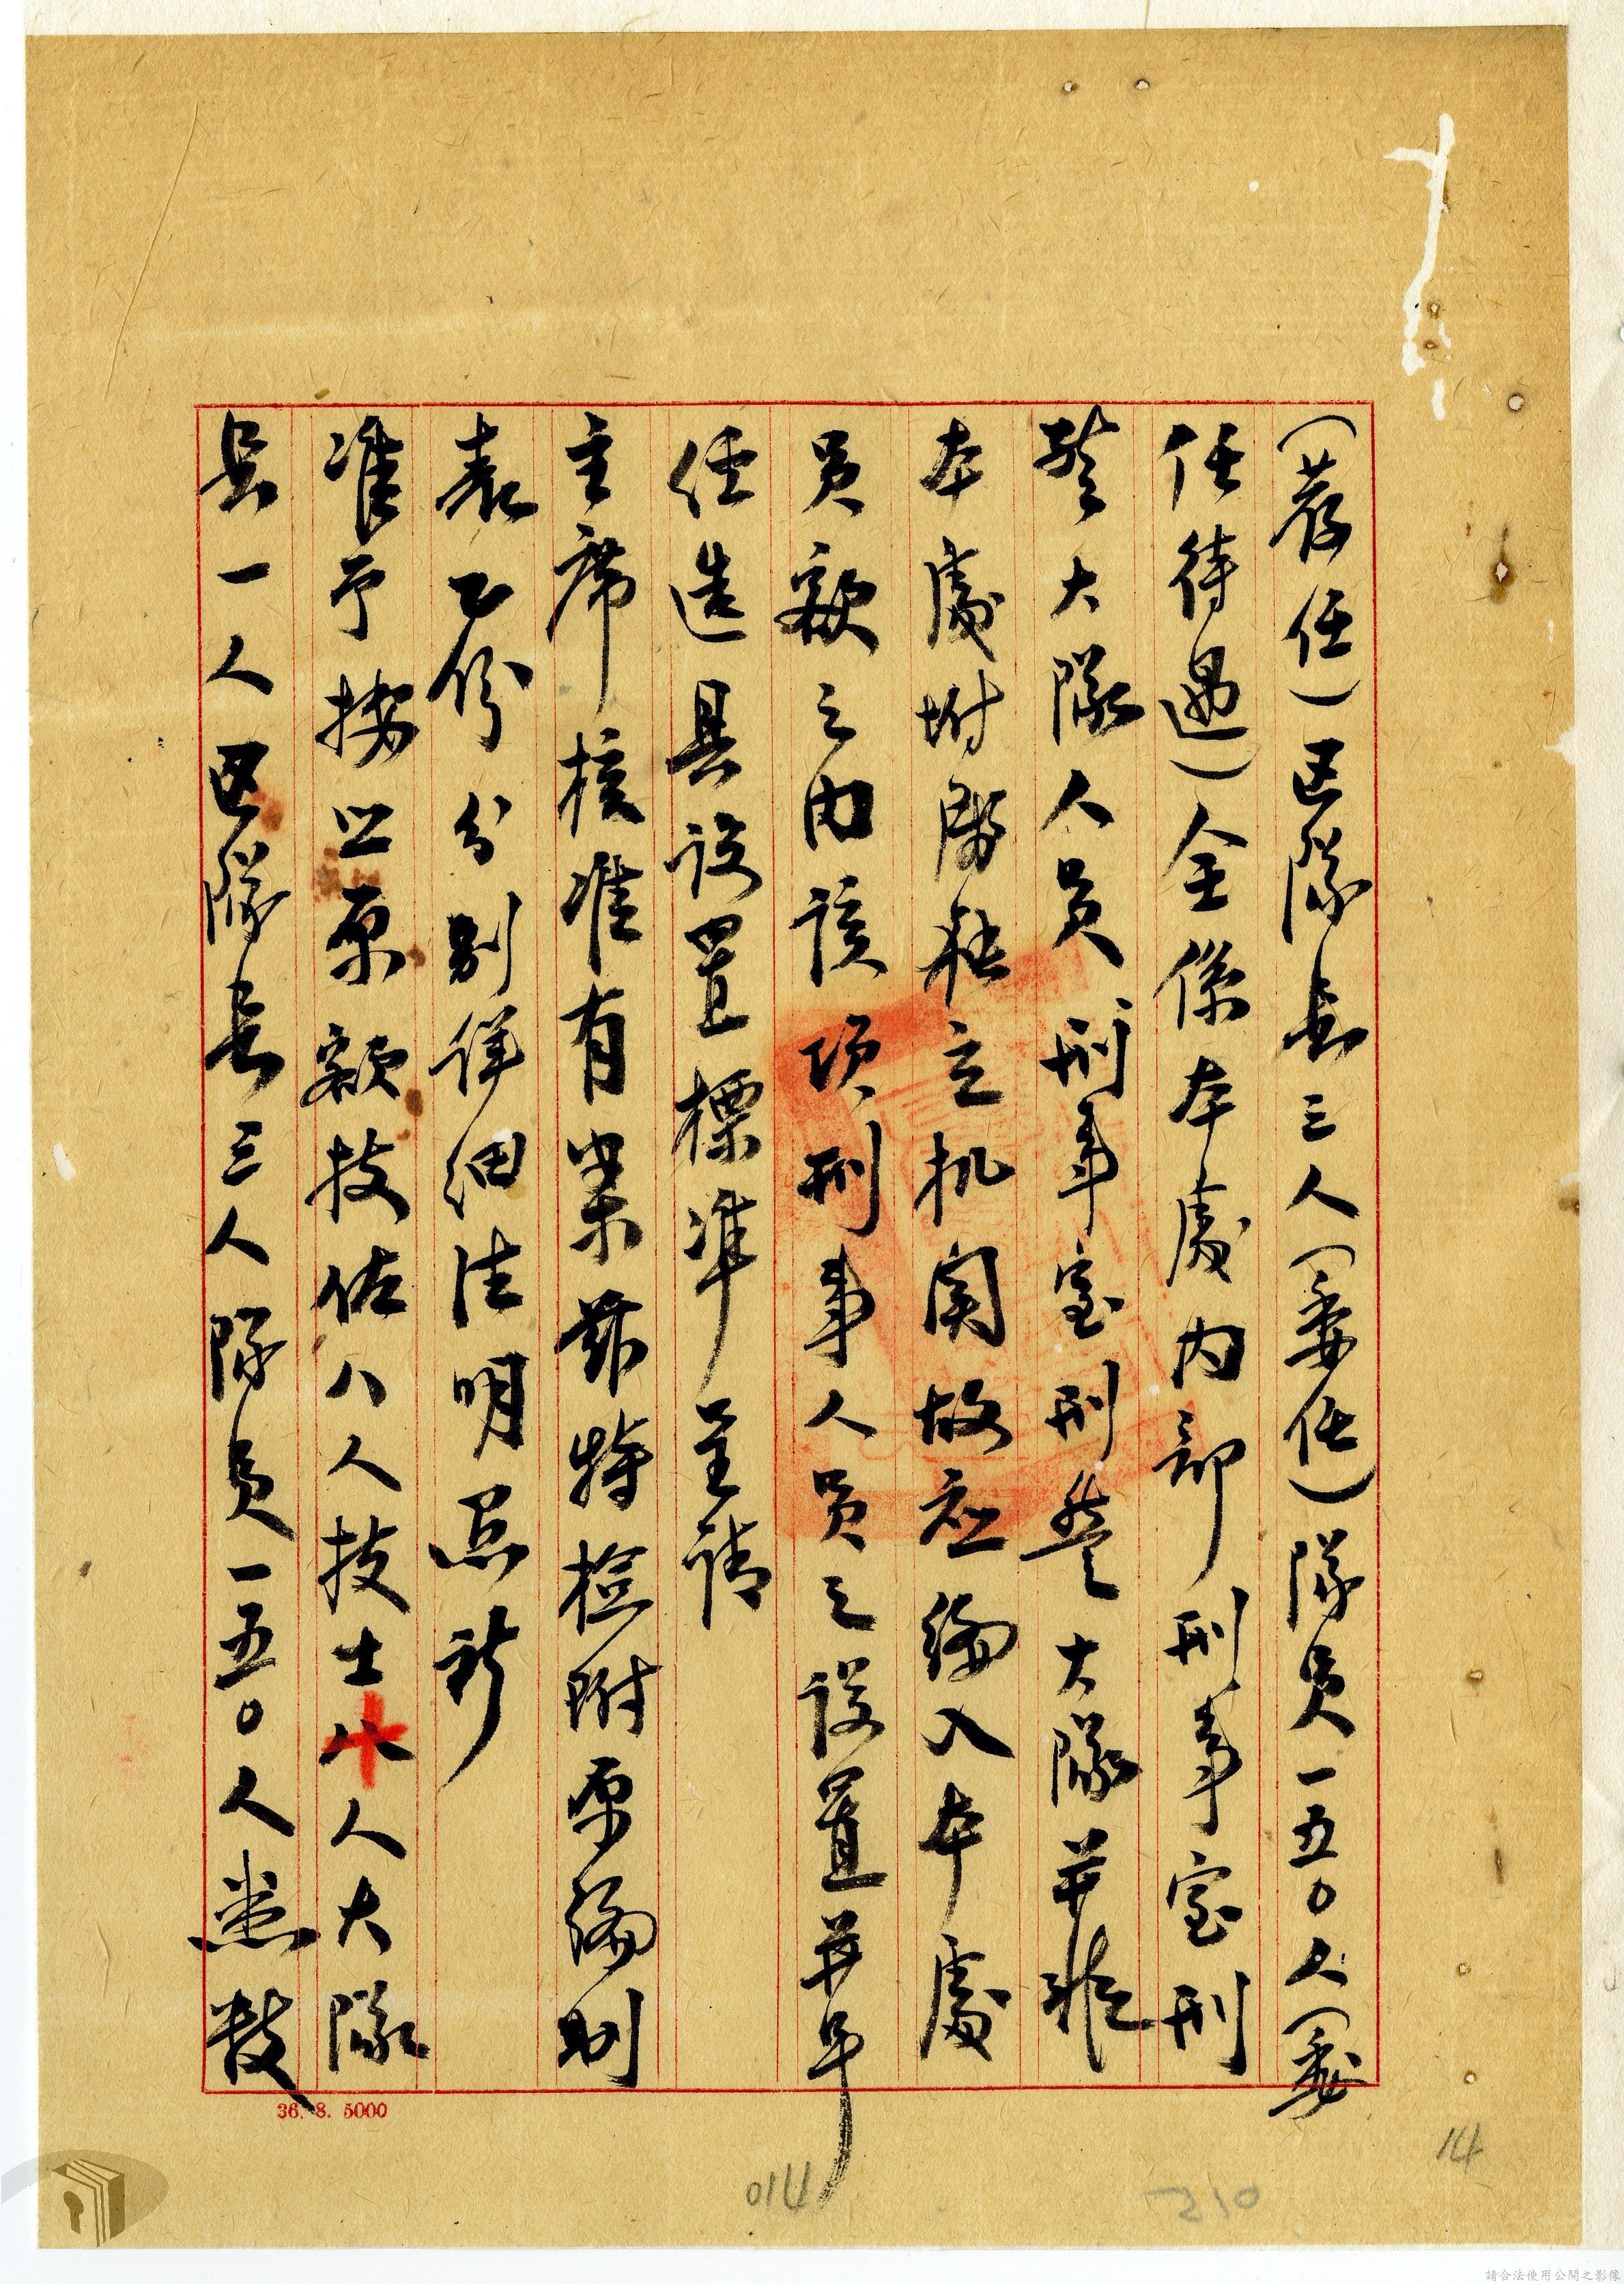 (荐任)区隊長三人(委任)隊員一五〇人(委
任待遇)全係本處内部刑事室刑
警大隊人員刑事室刑警大隊並非
本處附屬独立机関故應編入本處
員額之内該項刑事人員之設置並早
任造具設置標準呈請
主席核准有案茲特檢附原編制
表乙份分别詳细注明照祈
准予按照原額技佐八人技士八人大隊
長一人区隊長三人隊員一五〇人悉数
36. 8. 5000
014
210
14
請合法使用公開之影像